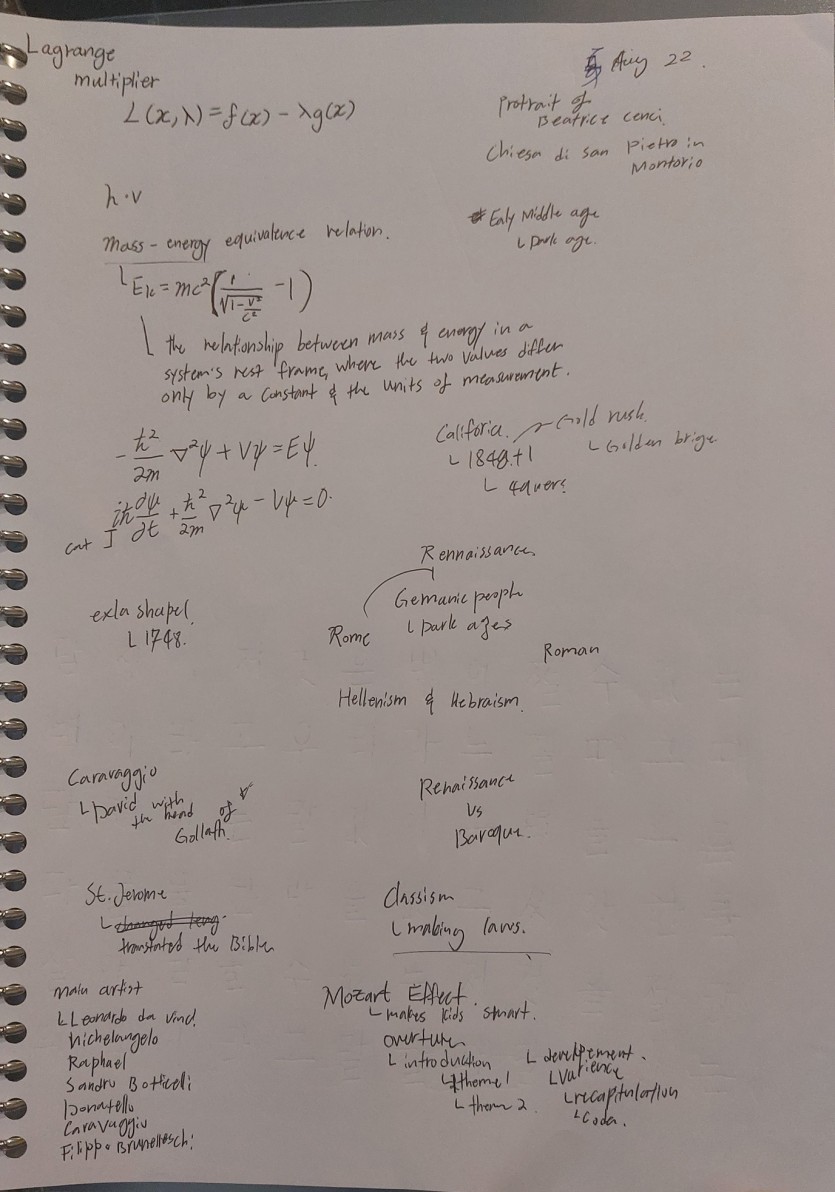 Lagrange
multiplier
L(x,λ)=f(x)-λg(x)
Aug 22.
Protrait of
Beatrice cenci.
Chiesa di san Pietro in
Montorio
h·v
Ealy Middle age
└ Dark age.
mass-energy equivalence relation.
└ Ek = mc²(1/√(1-v²/c²) -1)
└ the relationship between mass & energy in a
system's rest frame, where the two values differ
only by a constant & the units of measurement.
-ħ²/2m ∇²ψ + Vψ = Eψ.
iħ ∂ψ/∂t + ħ²/2m ∇²ψ - Vψ = 0.
cat
Califoria. Gold rush.
└ 1848.+1
└ Golden brige
└ 49ers
exla shapel.
└ 1748.
Rennaissance.
Gemanic people
└ Dark ages
Rome
Roman
Hellenism & Hebraism.
Caravaggio
└ David with
the head of
Goliath.
Renaissance
Vs
Baroque.
St. Jerome
└ translated the Bible
Classism
└ making laws.
main artist
└ Leonardo da vinci
Michelangelo
Raphael
Sandro Botticeli
Donatello
Caravaggio
Filippo Brunelleschi
Mozart Effect.
└ makes kids smart.
overture
└ introduction
└ theme 1
└ theme 2
└ development.
└ varience
└ recapitulation
└ coda.